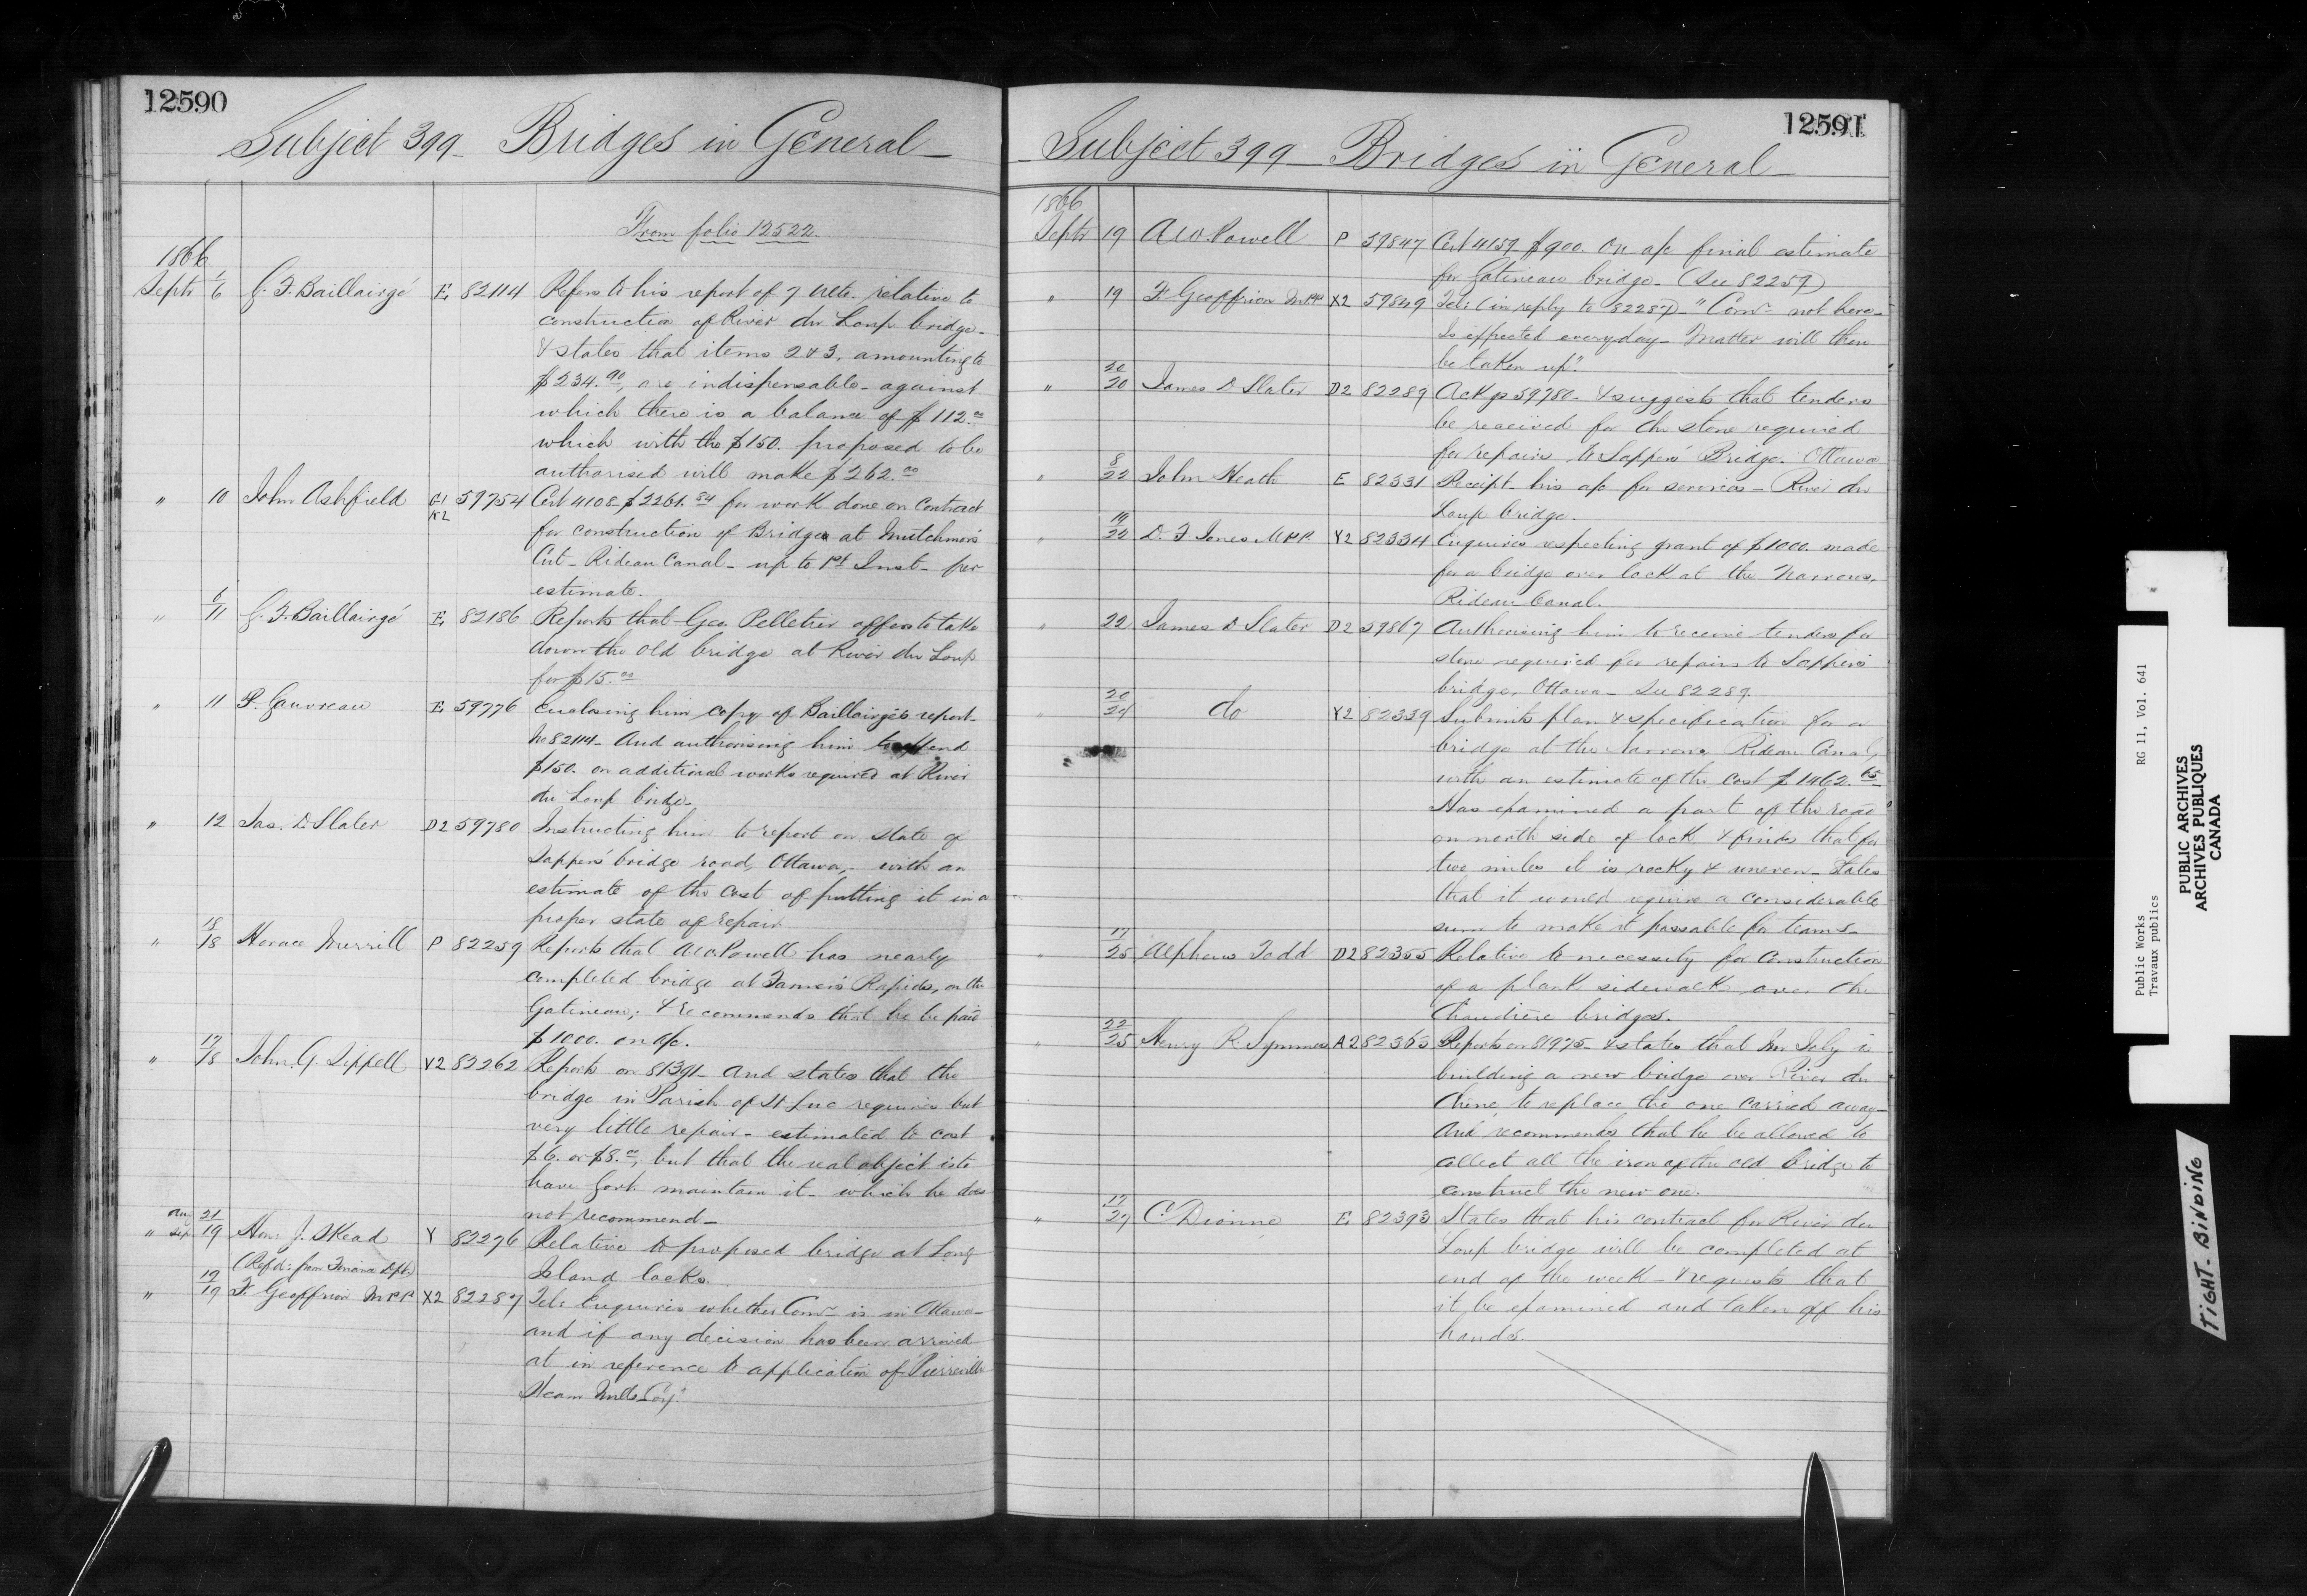 12590
Subject 399 - Bridges in General -
From folio 12522.
1866
Septr 1/6 G. F. Baillairgé E. 82114 Refers to his report of 7 ulto. relative to
construction of River du Loup bridge -
& states that items 2 & 3, amounting to
$234.90, are indispensable - against
which there is a balance of $112.00
which with the $150. proposed to be
authorised will make $262.00
" 10 John Ashfield G1 59754 Cert 4108 $2261.84 for work done on Contract
K2 for construction of Bridges at Mutchmor's
Cut - Rideau Canal - up to 1st Inst - per
estimate.
" 6/11 G. F. Baillairgé E. 82186 Reports that Geo. Pelletier offers to take
down the old bridge at River du Loup
for $15.00
" 11 P. Gauvreau E. 59776 Enclosing him copy of Baillairgé's report -
No 82114 - And authorising him to expend
$150. on additional works required at River
du Loup bridge -
" 12 Jas. D. Slater D2 59780 Instructing him to report on state of
Sappers' bridge road, Ottawa, - with an
estimate of the cost of putting it in a
proper state of repair
" 18/18 Horace Merrill P 82259 Reports that A. W. Powell has nearly
completed bridge at Farmer's Rapids, on the
Gatineau, & recommends that he be paid
$1000. on a/c.
" 17/18 John G. Sippell Y2 82262 Reports on 81391 - And states that the
bridge in Parish of St Luc requires but
very little repair - estimated to cost
$6. or $8.00, but that the real object is to
have Govt. maintain it - which he does
not recommend -
" Aug 21 / Sep 19 Hon: J. Skead Y 82276 Relative to proposed bridge at Long
(Refd: from Finance Dept) Island locks.
" 19/19 F. Geoffrion M.P.P. X2 82287 Tel: Enquires whether Comr. is in Ottawa -
and if any decision has been arrived
at in reference to application of "Pierreville
Steam Mills Coy."
12591
- Subject 399 - Bridges in General -
1866
Septr 19 A. W. Powell P 59847 Cert 4159 $900. On a/c final estimate
for Gatineau bridge - (See 82259)
" 19 F Geoffrion MPP X2 59849 Tel: (in reply to 82287) - "Comr. not here -
Is expected everyday - Matter will then
be taken up".
" 20/20 James D Slater D2 82289 Ack gs 59780 - & suggests that tenders
be received for the stone required
for repairs to Sappers' Bridge. Ottawa
" 8/22 John Heath E 82331 Receipt his a/c for services - River du
Loup bridge.
" 19/22 D. F. Jones M.P.P. Y2 82334 Enquires respecting grant of $1000. made
for a bridge over lock at the Narrows,
Rideau Canal.
" 22 James D Slater D2 59867 Authorising him to receive tenders for
stone required for repairs to Sappers'
bridge, Ottawa - See 82289
" 20/24 do Y2 82339 Submits plan & specification for a
bridge at the Narrows Rideau Canal,
with an estimate of the cost $1462.65 -
Has examined a part of the road
on north side of lock & finds that for
two miles it is rocky & uneven - States
that it would require a considerable
sum to make it passable for teams -
" 17/25 Alpheus Todd D2 82355 Relative to necessity for construction
of a plank sidewalk over the
Chaudière bridges.
" 22/25 Henry R. Symmes A2 82363 Reports on 81975 - & states that Mr Joly is
building a new bridge over River du
Chêne to replace the one carried away -
And recommends that he be allowed to
collect all the iron of the old bridge to
construct the new one.
" 17/27 C. Dionne E. 82393 States that his contract for River du
Loup bridge will be completed at
end of the week - & requests that
it be examined and taken off his
hands.
Public Works RG 11, Vol. 641
Travaux publics
PUBLIC ARCHIVES
ARCHIVES PUBLIQUES
CANADA
TIGHT-BINDING